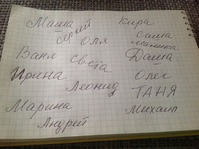 Маша Кира
Сергей
Оля
Ваня Света Даша
Ирина Олег
Леонид ТАНЯ
Марина Михаил
Андрей